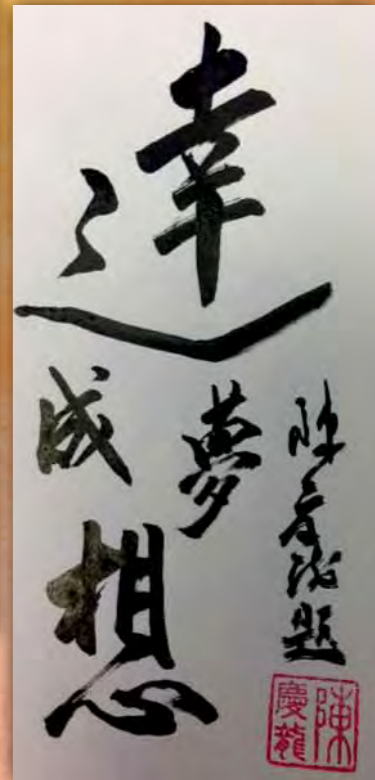 達成夢想
陳慶龍題
陳慶龍